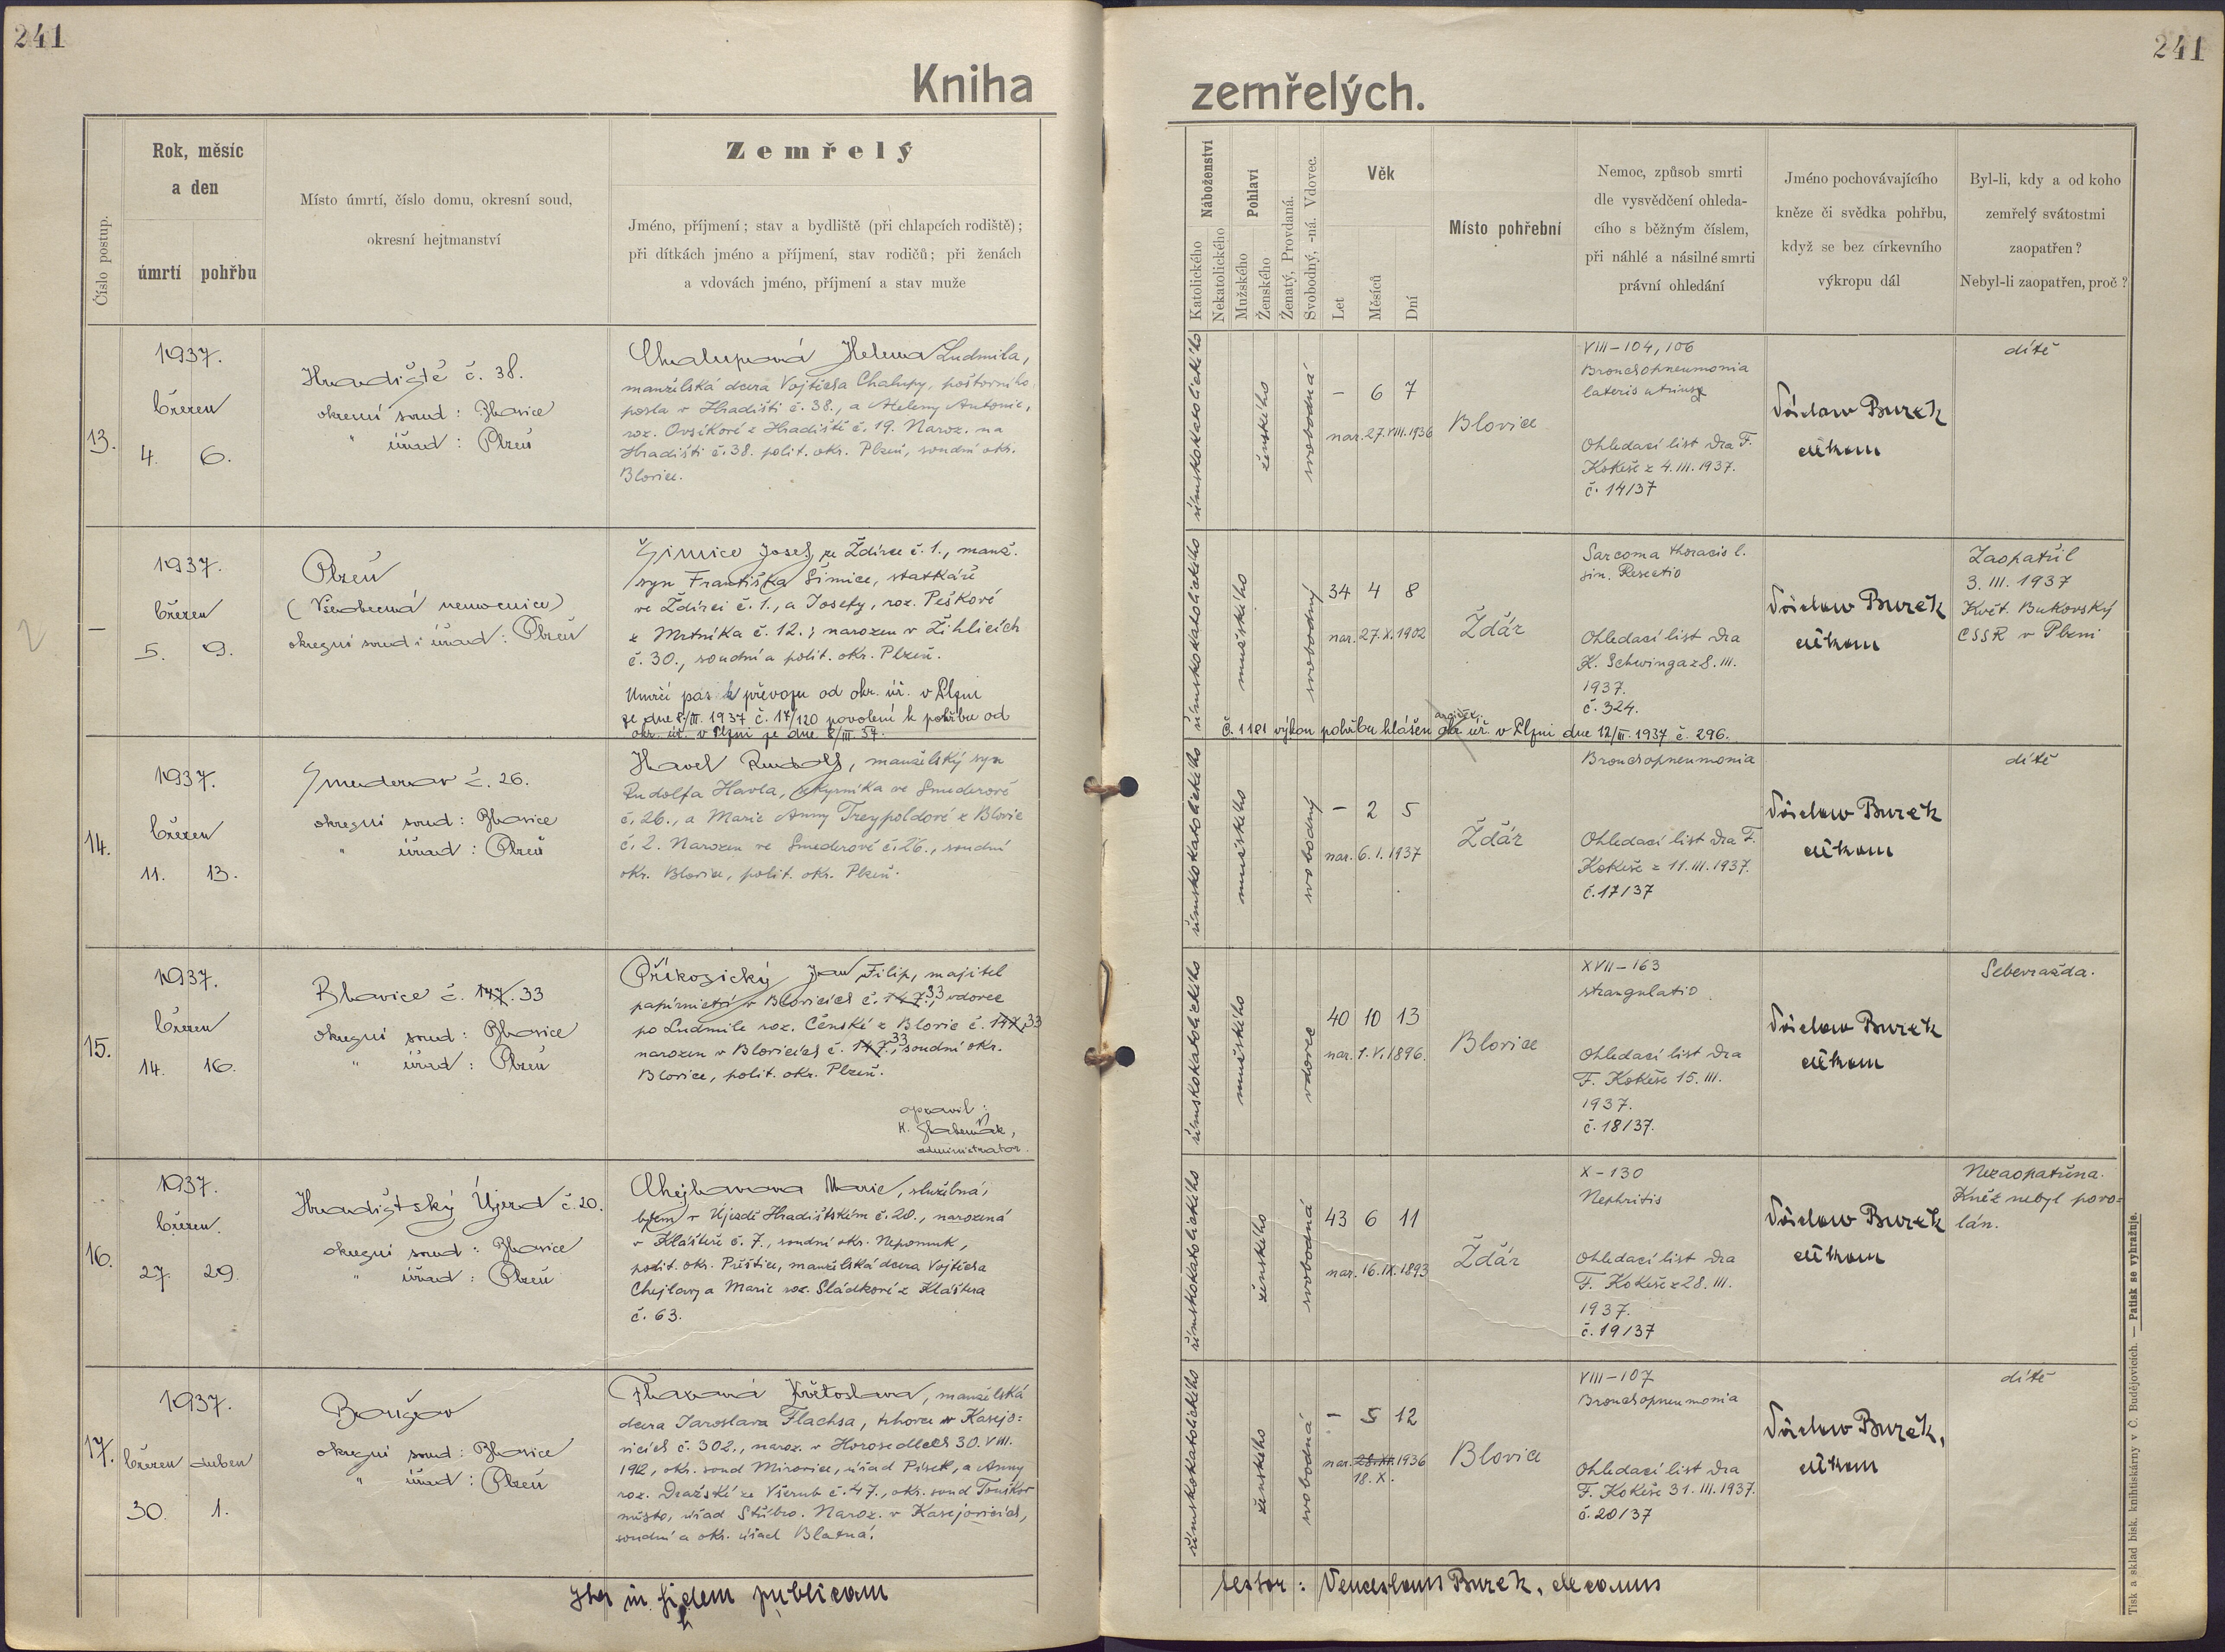 241
241
Kniha
zemřelých.
Číslo postup.
Rok, měsíc
a den
úmrtí
pohřbu
Místo úmrtí, číslo domu, okresní soud,
okresní hejtmanství
Zemřelý
Jméno, příjmení; stav a bydliště (při chlapcích rodiště);
při dítkách jméno a příjmení, stav rodičů; při ženách
a vdovách jméno, příjmení a stav muže
Náboženství
Katolického
Nekatolického
Pohlaví
Mužského
Ženského
Ženatý, Provdaná.
Svobodný, -ná. Vdovec.
Věk
Let
Měsíců
Dní
Místo pohřební
Nemoc, způsob smrti
dle vysvědčení ohleda-
cího s běžným číslem,
při náhlé a násilné smrti
právní ohledání
Jméno pochovávajícího
kněze či svědka pohřbu,
když se bez církevního
výkropu dál
Byl-li, kdy a od koho
zemřelý svátostmi
zaopatřen?
Nebyl-li zaopatřen, proč?
13.
1937.
březen
4. 6.
Hradiště č. 38.
okresní soud: Blovice
" úřad: Plzeň
Chalupová Helena Ludmila,
manželská dcera Vojtěcha Chalupy, poštovního
posla v Hradišti č. 38., a Heleny Antonie,
roz. Ovsíkové z Hradiště č. 19. Naroz. na
Hradišti č. 38. polit. okr. Plzeň, soudní okr.
Blovice.
římskokatolického
ženského
svobodná
– 6 7
nar. 27. VIII. 1936
Blovice
VIII – 104, 106
Bronchopneumonia
lateris utriusq
Ohledací list dra F.
Kokeše z 4. III. 1937.
č. 14/37
Václav Bureš
děkan
dítě
2
–
1937.
březen
5. 9.
Plzeň
(Všeobecná nemocnice)
okresní soud i úřad: Plzeň
Šimice Josef, ze Ždírce č. 1., manž.
syn Františka Šimice, statkáře
ve Ždírci č. 1., a Josefy, roz. Peškové
z Mrtníka č. 12.; narozen v Žihlicích
č. 30., soudní a polit. okr. Plzeň.
Umrčí pas k převozu od okr. úř. v Plzni
ze dne 8/III. 1937 č. 17/120 povolení k pohřbu od
okr. úř. v Plzni ze dne 8/III. 37.
římskokatolického
mužského
svobodný
34 4 8
nar. 27. X. 1902
Ždár
Sarcoma thoracis l.
sin. Resectio
Ohledací list dra
K. Schwinga z 8. III.
1937.
č. 324.
Václav Bureš
děkan
Zaopatřil
3. III. 1937
Květ. Bukovský
CSSR v Plzni
č. 1181 výkon pohřbu hlášen okr. úř. v Plzni dne 12/III. 1937 č. 296.
14.
1937.
březen
11. 13.
Smederov č. 26.
okresní soud: Blovice
" úřad: Plzeň
Havel Rudolf, manželský syn
Rudolfa Havla, cukrovníka ve Smederově
č. 26., a Marie Anny Treypoldové z Blovic
č. 2. Narozen ve Smederově č. 26., soudní
okr. Blovice, polit. okr. Plzeň.
římskokatolického
mužského
svobodný
– 2 5
nar. 6. I. 1937
Ždár
Bronchopneumonia
Ohledací list dra F.
Kokeše z 11. III. 1937.
č. 17/37
Václav Bureš
děkan
dítě
15.
1937.
březen
14. 16.
Blovice č. 147. 33
okresní soud: Blovice
" úřad: Plzeň
Příkosický Jan Filip, majitel
papírnictví v Blovicích č. 147. 33, vdovec
po Ludmile roz. Čenské z Blovic č. 147. 33
narozen v Blovicích č. 147. 33, soudní okr.
Blovice, polit. okr. Plzeň.
opravil:
administrator.
římskokatolického
mužského
vdovec
40 10 13
nar. 1. V. 1896.
Blovice
XVII – 163
strangulatio
Ohledací list dra
F. Kokeše 15. III.
1937.
č. 18/37.
Václav Bureš
děkan
Sebevražda.
16.
1937.
březen
27. 29.
Hradištský Újezd č. 20.
okresní soud: Blovice
" úřad: Plzeň
Chejlavova Marie, služebná,
bytem v Újezdě Hradištském č. 20., narozená
v Klášteře č. 7., soudní okr. Nepomuk,
polit. okr. Přeštice, manželská dcera Vojtěcha
Chejlavy a Marie roz. Sládkové z Kláštera
č. 63.
římskokatolického
ženského
svobodná
43 6 11
nar. 16. IX. 1893
Ždár
X – 130
Nephritis
Ohledací list dra
F. Kokeše z 28. III.
1937.
č. 19/37
Václav Bureš
děkan
Nezaopatřena.
Kněz nebyl povo=
lán.
17.
1937.
březen duben
30. 1.
okresní soud: Blovice
" úřad: Plzeň
Flaxová Květoslava, manželská
dcera Jaroslava Flachsa, v Kasejo=
vicích č. 302., naroz. v Horosedlech 30. VIII.
1912, okr. soud Mirovice, úřad Písek, a Anny
roz. Dražské ze Všerub č. 47., okr. soud Touškov
město, úřad Stříbro. Naroz. v Kasejovicích,
soudní a okr. úřad Blatná.
římskokatolického
ženského
svobodná
– 5 12
nar. 28. XI. 1936
18. X.
Blovice
VIII – 107
Bronchopneumonia
Ohledací list dra
F. Kokeše 31. III. 1937.
č. 20/37
Václav Bureš,
děkan
dítě
Ita in fidem publicam
testor: Venceslaus Bureš, decanus
Tisk a sklad bisk. knihtiskárny v Č. Budějovicích. — Patisk se vyhražuje.